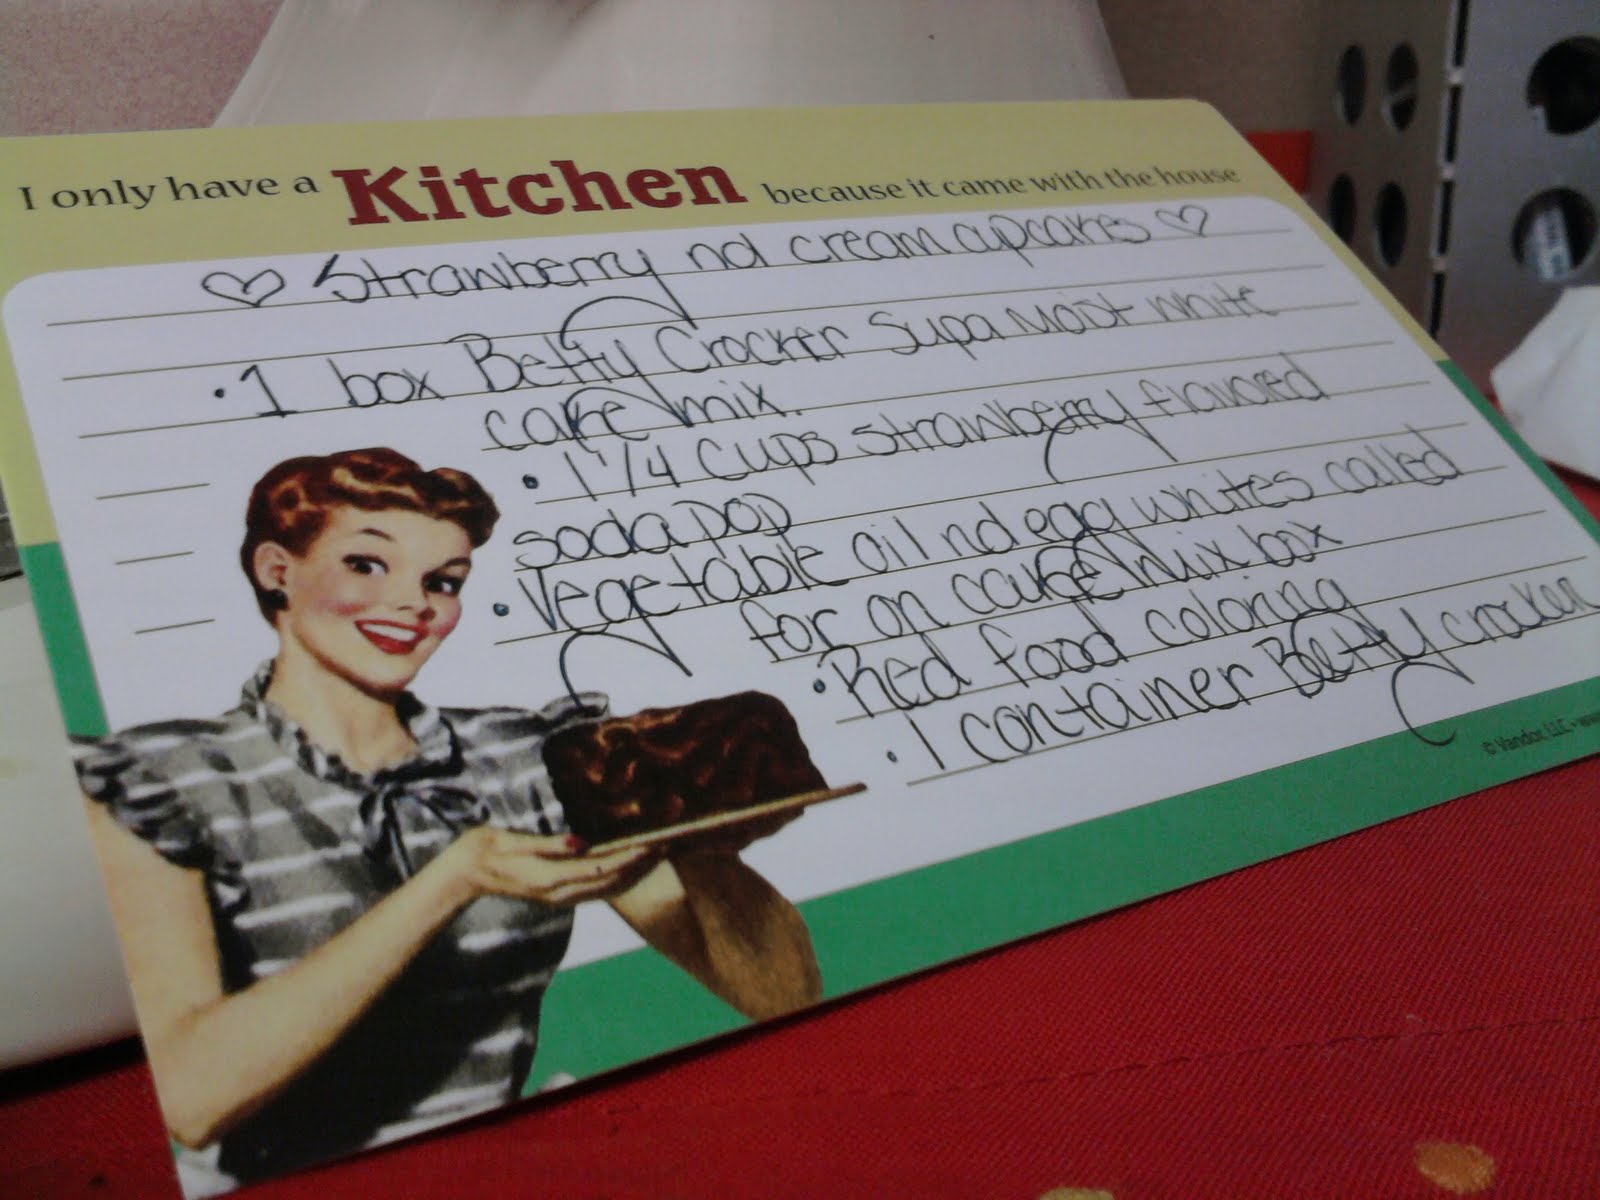 I only have a Kitchen because it came with the house
♡ Strawberry nd cream cupcakes ♡
• 1 box Betty Crocker Supa Moist white
cake mix.
• 1 1/4 cups strawberry flavored
soda pop
• Vegetable oil nd egg whites called
for on cake mix box
• Red food coloring
• 1 container Betty crocker
© Vandor, LLC •